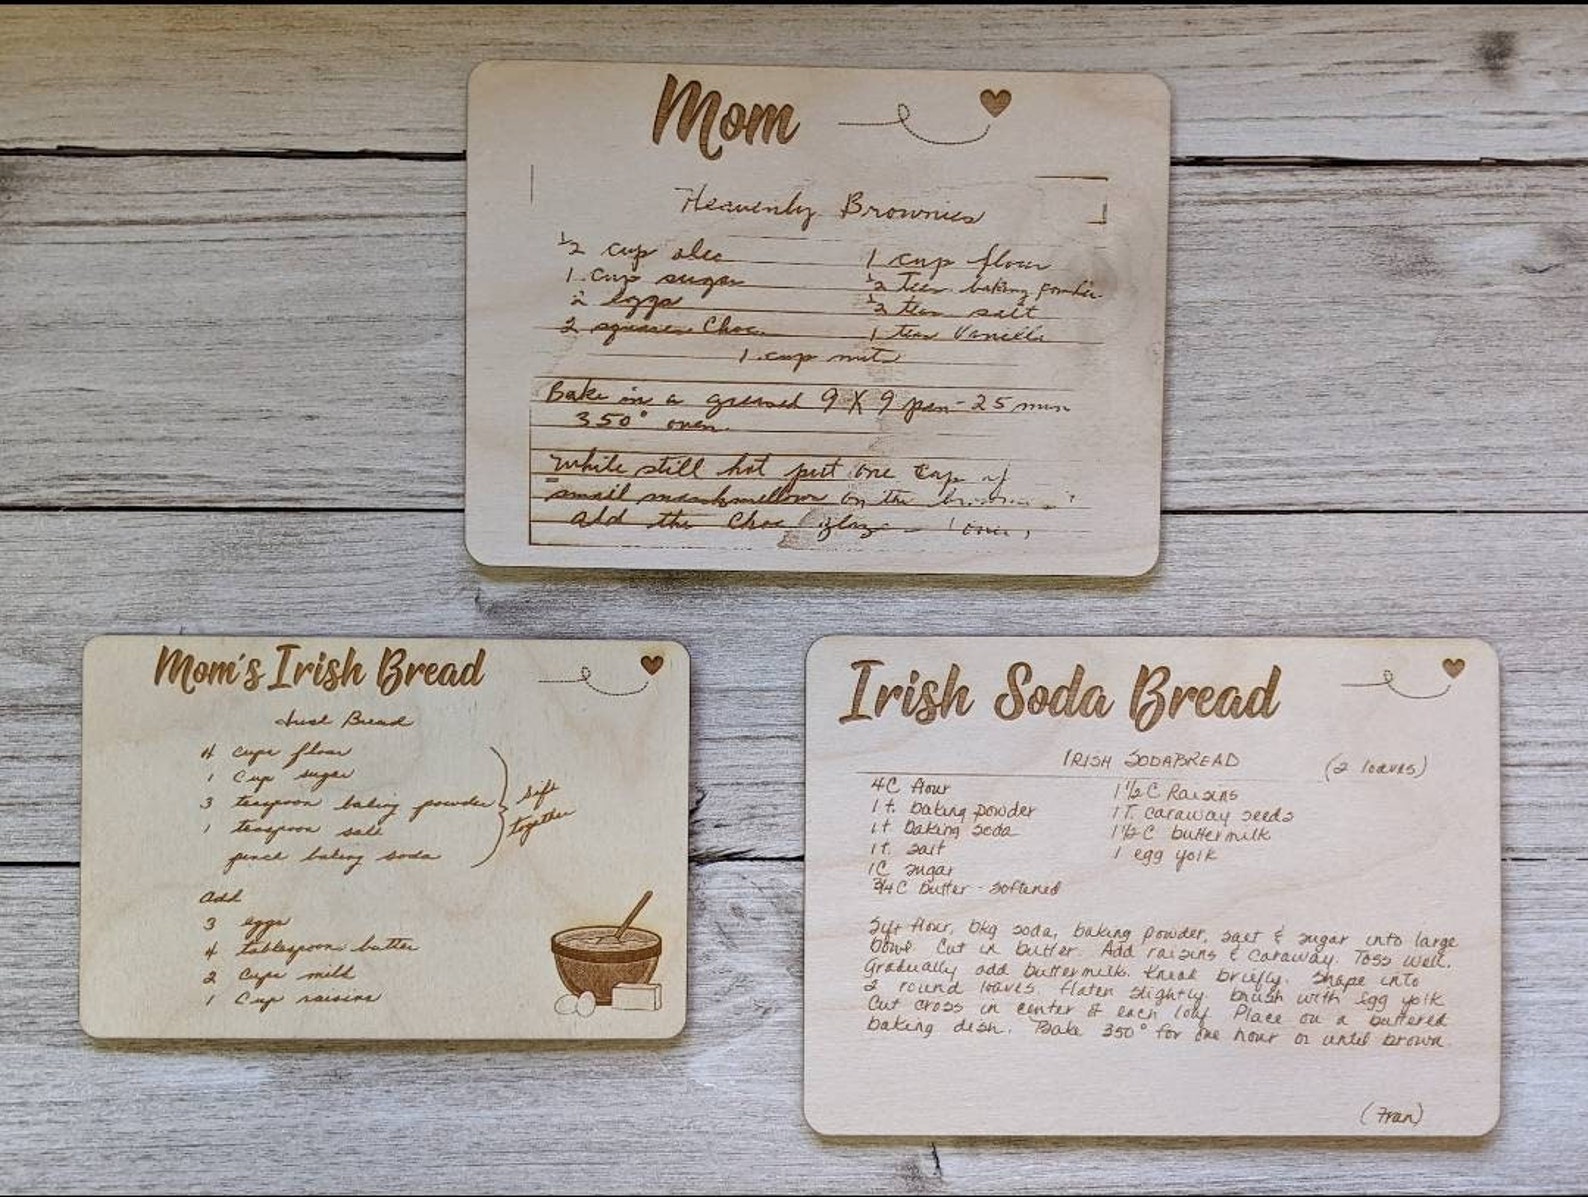 Mom
Heavenly Brownies
1/2 cup oleo
1 cup sugar
2 eggs
2 squares Choc.
1 cup flour
1/2 teas baking powder
1/2 teas salt
1 teas Vanilla
1 cup nuts
Bake in a greased 9 X 9 pan - 25 min
350° oven.
While still hot put one cup of
small marshmellows on the
add the Choc glaze
Mom's Irish Bread
Irish Bread
4 cups flour
1 Cup sugar
3 teaspoon baking powder
1 teaspoon salt
pinch baking soda
Sift
together
Add
3 eggs
4 tablespoon butter
2 Cups milk
1 Cup raisins
Irish Soda Bread
IRISH SODABREAD (2 loaves)
4C flour
1 t. baking powder
1 t baking soda
1 t. salt
1C sugar
3/4C butter - softened
1 1/2 C Raisins
1 T. caraway seeds
1 1/2 C buttermilk
1 egg yolk
Sift flour, bkg soda, baking powder, salt & sugar into large
bowl. Cut in butter. Add raisins & caraway. Toss well.
Gradually add buttermilk. Knead briefly. Shape into
2 round loaves. flaten slightly. brush with egg yolk
Cut cross in center of each loaf. Place on a buttered
baking dish. Bake 350° for one hour or until brown.
(Fran)